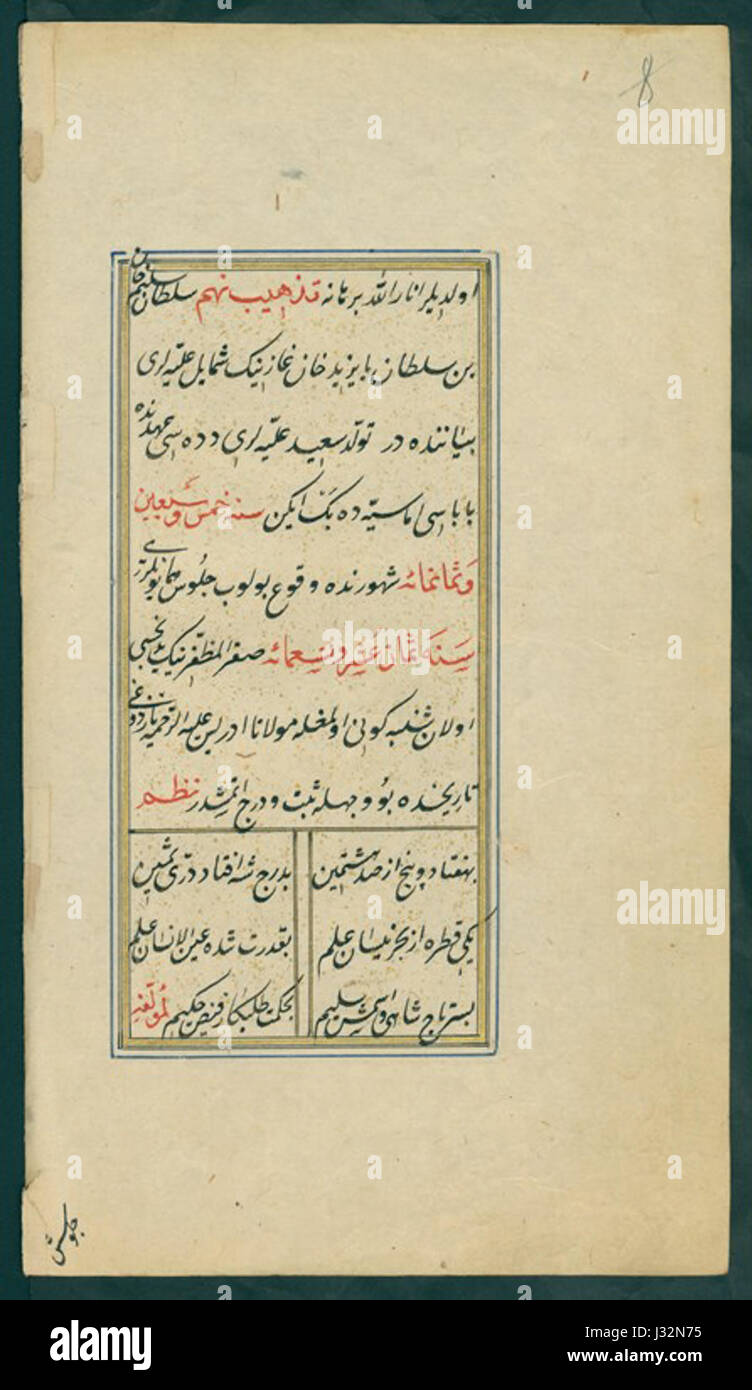 8
اولدیلر انار الله برهانه تذهیب نهم سلطان سلیم خان
بن سلطان بایزید خان غازینیك شمایل علیه لری
بیاننده در تولد سعید علیه لری دده سی عهدنده
باباسی اماسیه ده بك ایكن سنه خمس و سبعین
و ثمانمائه شهورنده وقوع بولوب جلوس همایونلری
سنه ثمان عشر و تسعمائه صفر المظفرینیك
اولان شنبه كونی اولمغله مولانا ادریس علیه الرحمه
تاریخنده بو وجهله ثبت و درج اتمشدر نظم
بهفتاد و پنج از صد هشتمین بدرج شه افتاد دری ثمین
یكی قطره از بحر نیسان علم بقدرت شده عین الانسان علم
بسر تاج شاهی و اسمش سلیم بحكمت طلبكار فیض حكیم لمؤلفه
جلوس
alamy
Image ID: J32N75
www.alamy.com